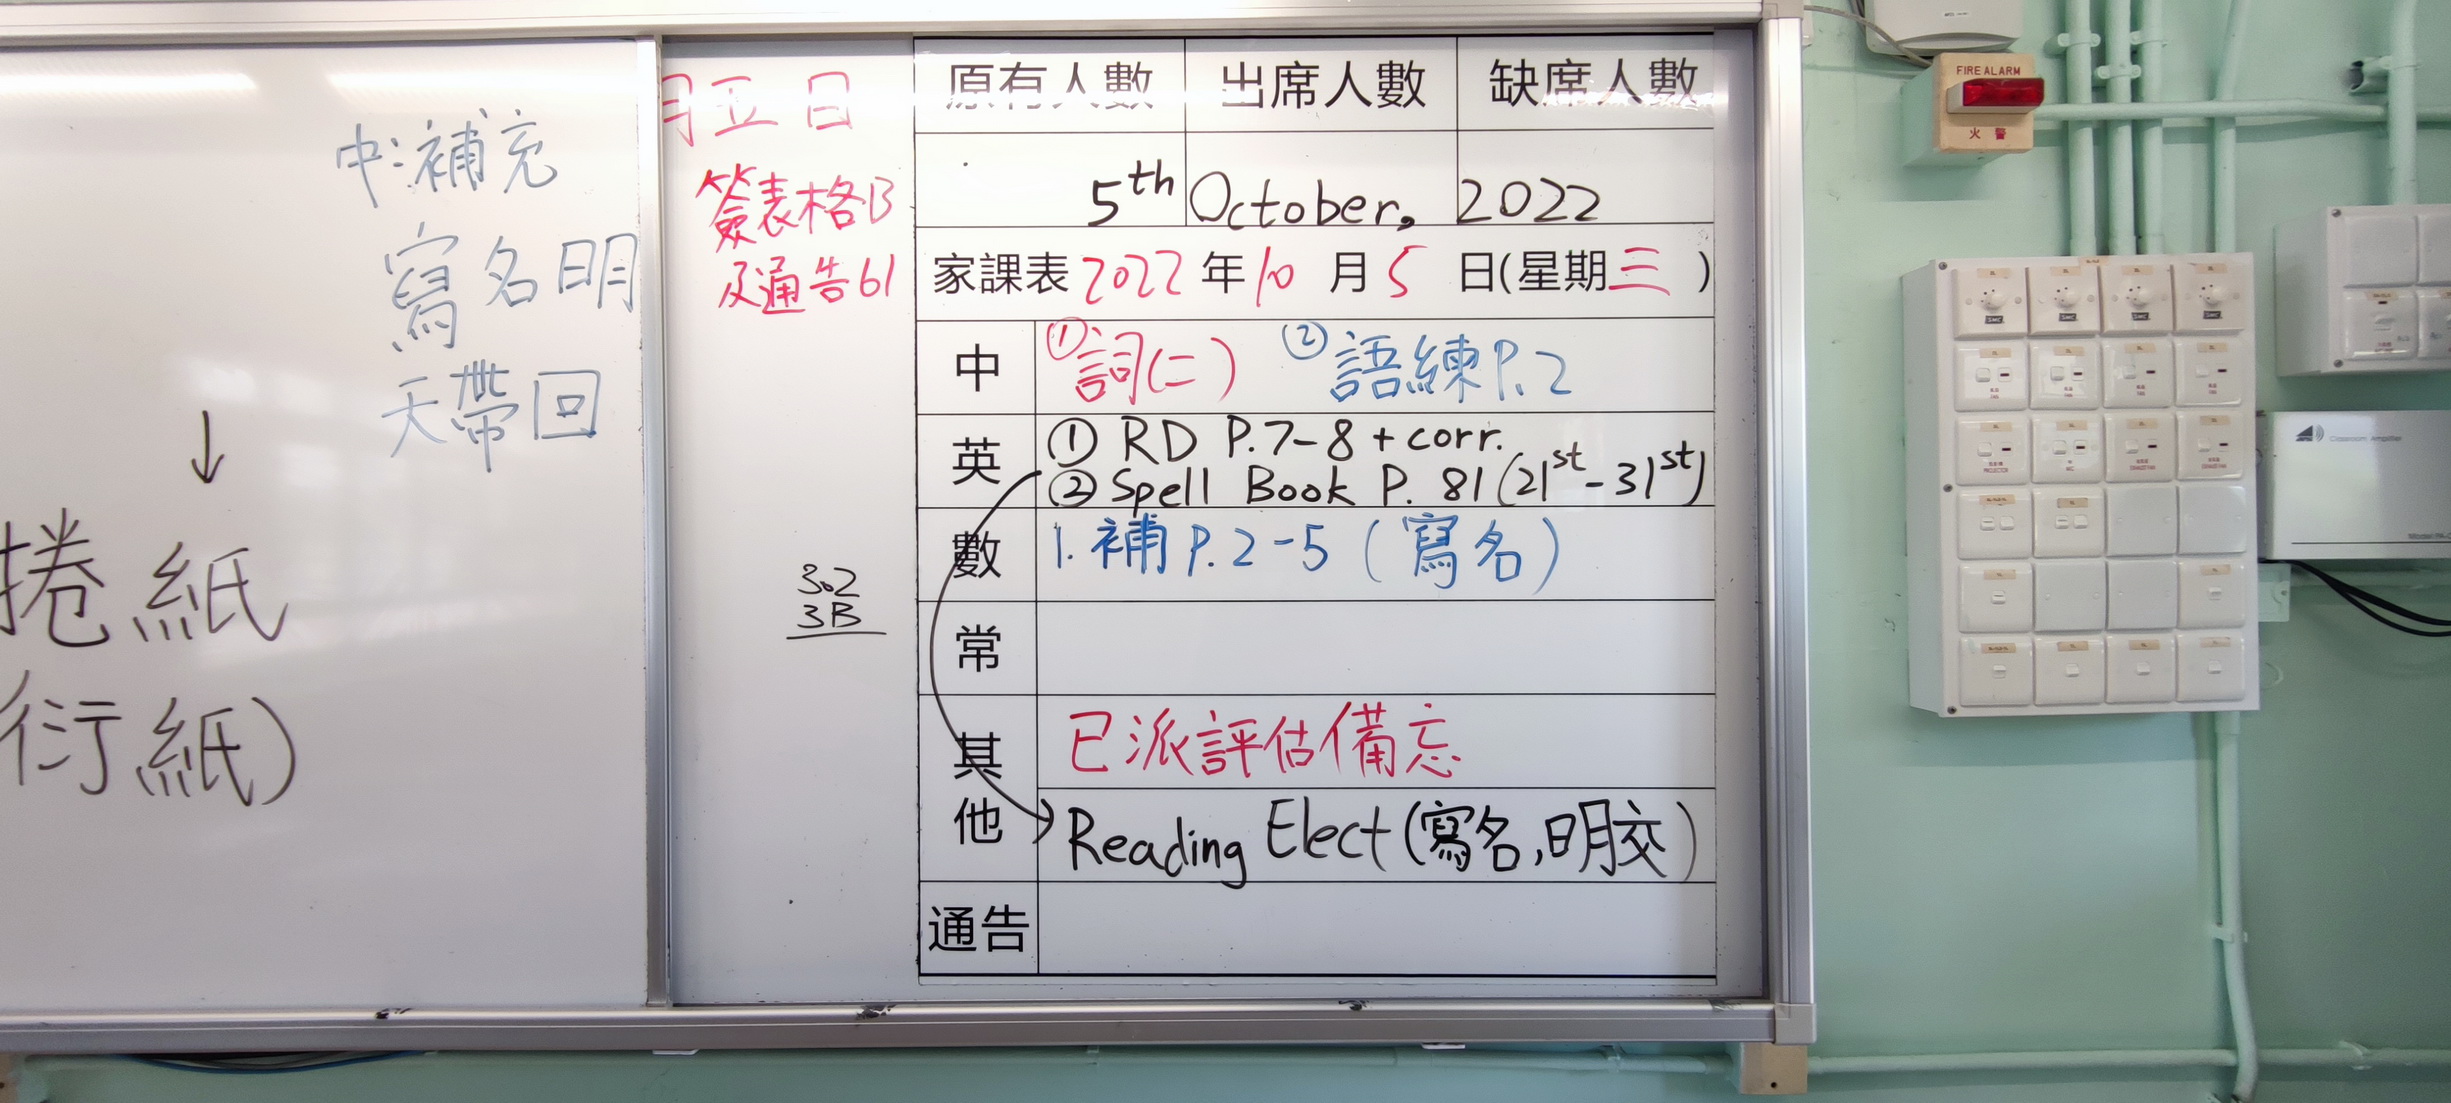 中:補充
寫名明
天帶回
↓
捲紙
衍紙)
月五日
簽表格B
及通告61
3.2
3B
原有人數 出席人數 缺席人數
5th October, 2022
家課表 2022 年 10 月 5 日(星期三)
中 ①詞(二) ②語練P.2
英 ① RD P.7-8 + corr.
② Spell Book P. 81 (21st - 31st)
數 1. 補 P.2-5 (寫名)
常
其他 已派評估備忘
Reading Elect (寫名,明交)
通告
FIRE ALARM
火警
Classroom Amplifier